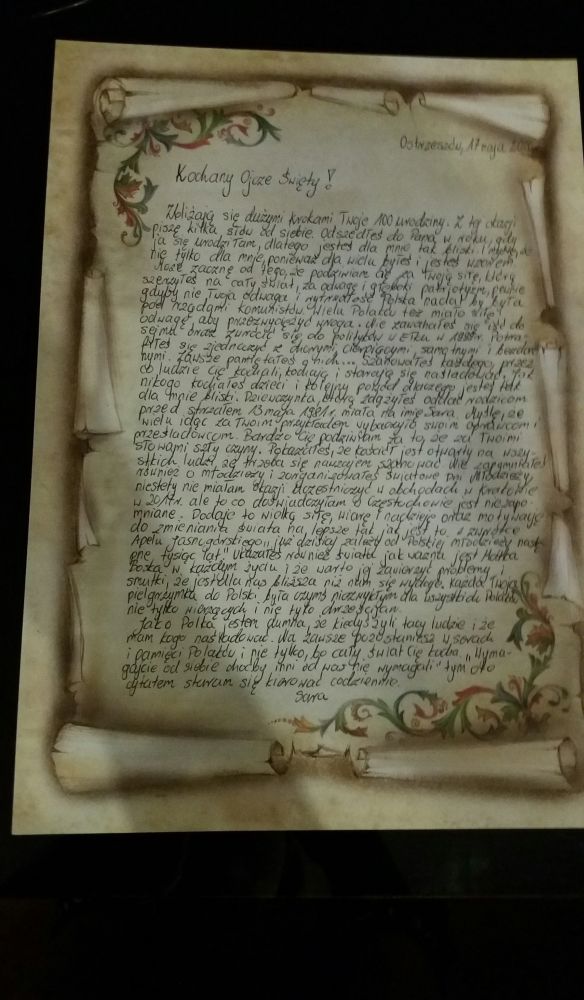 Ostrzeszów, 17 maja
Kochany Ojcze Święty!
Zbliżają się dużymi krokami Twoje 100 urodziny. Z tej okazji
piszę kilka słów od siebie. Odszedłeś do Pana w roku, gdy
ja się urodziłam, dlatego jesteś dla mnie tak bliski i myślę, że
nie tylko dla mnie, ponieważ dla wielu byłeś i jesteś wzorem.
Może zacznę od tego, że podziwiam Cię za Twoją siłę, którą
szerzyłeś na cały świat, za odwagę i głęboki patriotyzm, pewnie
gdyby nie Twoja odwaga i wytrwałość Polska nadal by była
pod rządami komunistów. Wielu Polaków też miało siłę i
odwagę, aby przezwyciężyć wroga. Nie zawahałeś się iść do
sejmu oraz zwrócić się do polityków w 1999r. Potra-
fiłeś się zjednoczyć z chorymi, cierpiącymi, samotnymi i bezdom
nymi. Zawsze pamiętałeś o nich... Szanowałeś każdego, przez
co ludzie Cię kochali, kochają i starają się naśladować. Jak
nikogo kochałeś dzieci i kolejny powód dlaczego jesteś tak
dla mnie bliski. Dziewczynka, którą zdążyłeś oddać rodzicom
przed strzałem 13 maja 1981r. miała na imię Sara. Myślę, że
wielu idąc za Twoim przykładem wybaczyło swoim oprawcom i
prześladowcom. Bardzo Cię podziwiam za to, że za Twoimi
słowami szły czyny. Pokazałeś, że kościół jest otwarty na wszy-
stkich ludzi, że trzeba się nawzajem szanować. Nie zapomniałeś
również o młodzieży i zorganizowałeś Światowe Dni Młodzieży,
niestety nie miałam okazji uczestniczyć w obchodach w Krakowie
w ale to co doświadczyłam w Częstochowie jest niezapo-
mniane. Dodaje to wielką siłę, wiarę i nadzieję oraz motywację
do zmieniania świata na lepsze tak jak jest to w zwrotce
Apelu Jasnogórskiego „już dzisiaj zależy od Polskiej młodzieży nast
ępne tysiąc lat". Ukazałeś również światu jak ważna jest Matka
Boska w każdym życiu i że warto jej zawierzyć problemy i
smutki, że jest dla nas bliższa niż nam się wydaje. Każda Twoja
pielgrzymka do Polski była czymś niezwykłym dla wszystkich Polaków
nie tylko wierzących i nie tylko chrześcijan.
Jako Polka jestem dumna, że kiedyś żyli tacy ludzie i że
mam kogo naśladować. Na zawsze pozostaniesz w sercach
i pamięci Polaków i nie tylko, bo cały świat Cię kocha. „Wyma-
gajcie od siebie choćby inni od was nie wymagali" tym oto
cytatem staram się kierować codziennie.
Sara